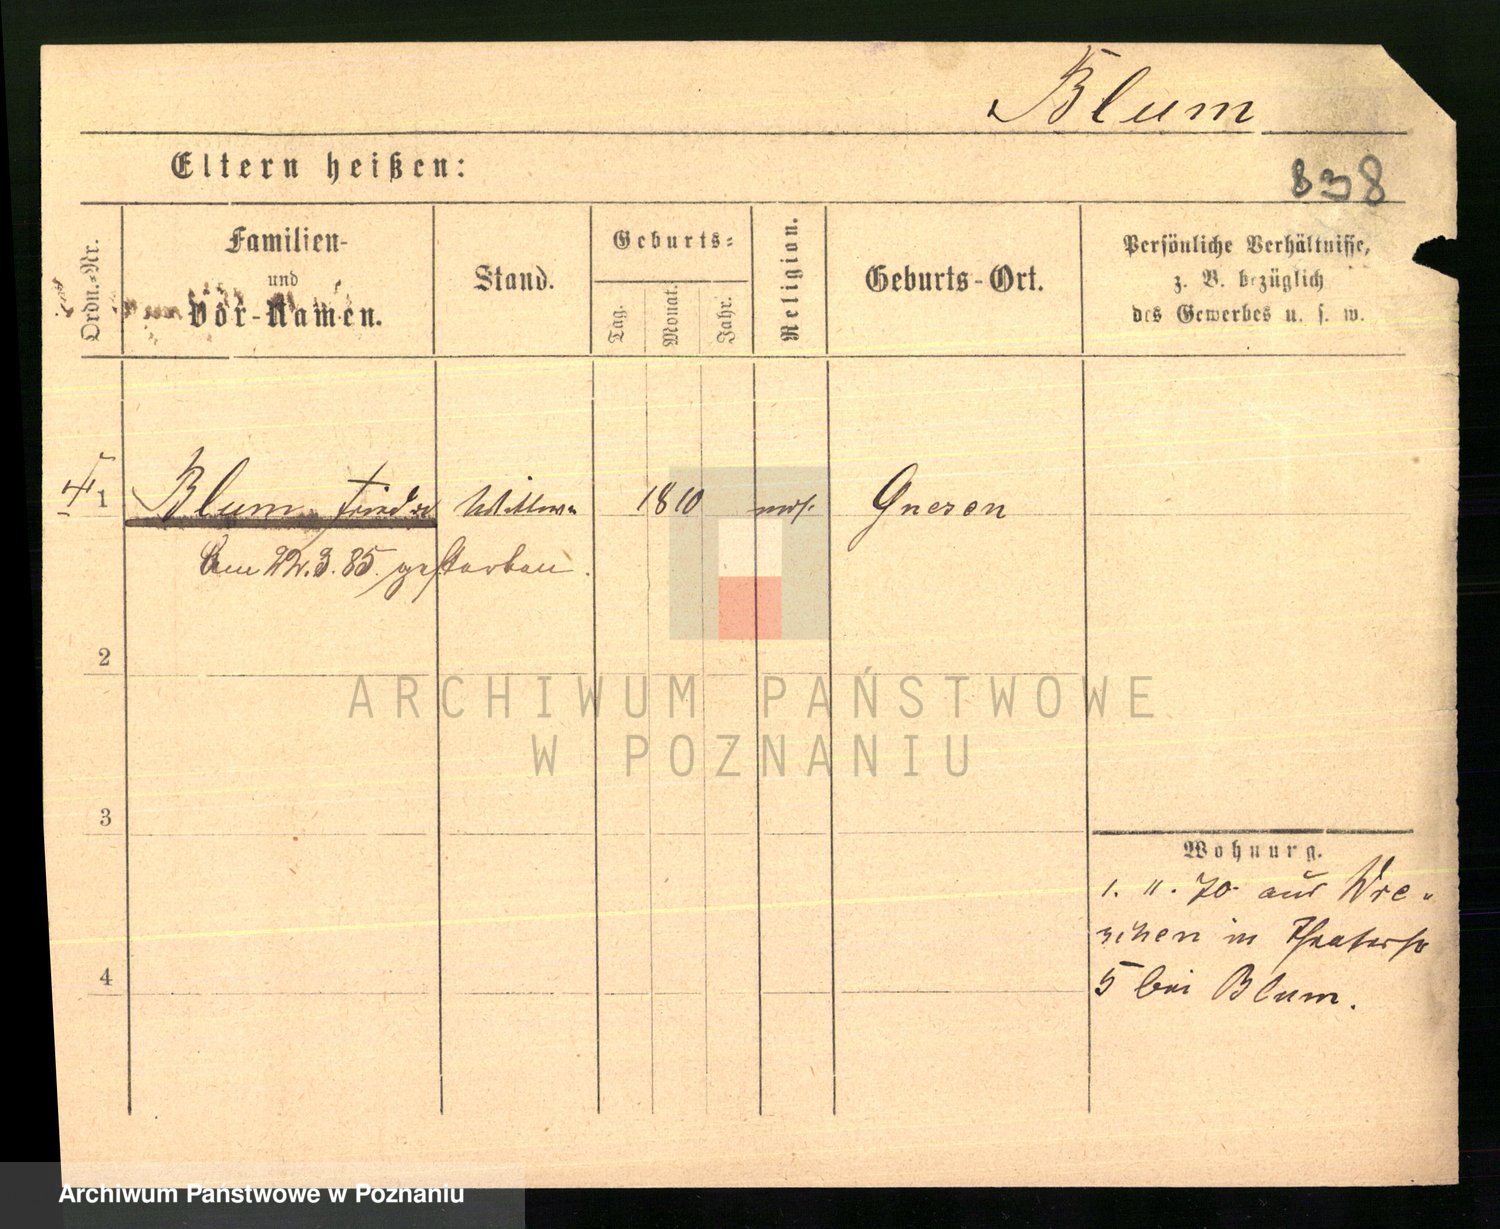 Blum
Eltern heißen:
838
Ordn.-Nr.
Familien-
und
Vor-Namen.
Stand.
Geburts-
Tag.
Monat.
Jahr.
Religion.
Geburts-Ort.
Persönliche Verhältnisse,
z. B. bezüglich
des Gewerbes u. s. w.
1 Blum Wittwe 1810 mos. Gnesen
am 22.3.85 gestorben.
2
ARCHIWUM PAŃSTWOWE
W POZNANIU
3
Wohnung.
1. 11. 70 aus Wre-
schen in Theaterstr
5 bei Blum.
4
Archiwum Państwowe w Poznaniu